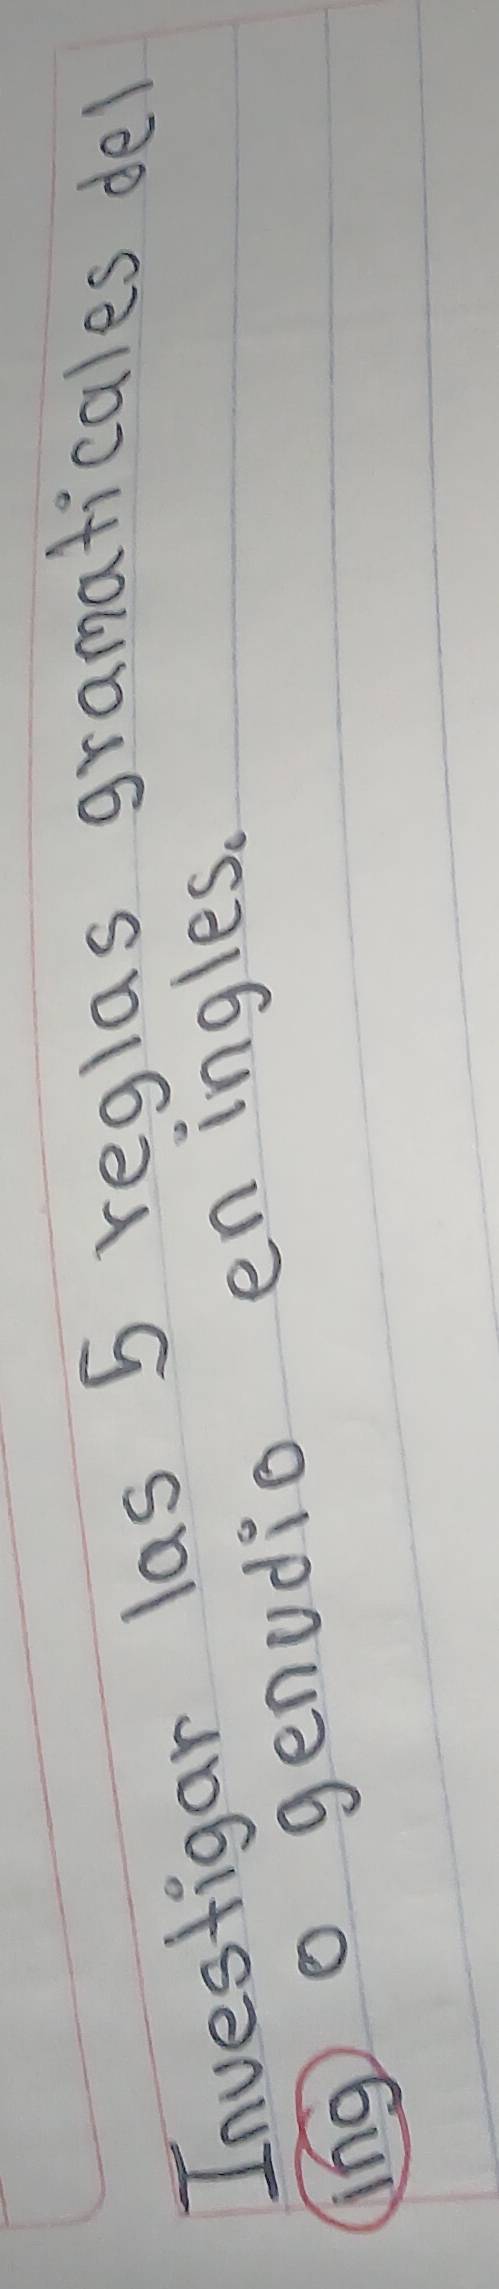 Investigar las 5 reglas gramaticales del
ing o genudio en ingles.